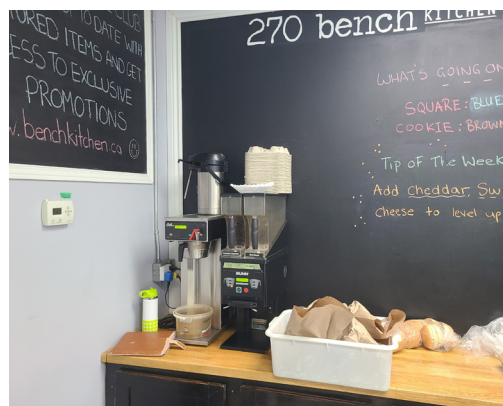 CLUB
UP TO DATE WITH
TURED ITEMS AND GET
ESS TO EXCLUSIVE
PROMOTIONS
w.benchkitchen.ca
270 bench KITCHEN
WHAT'S GOING ON
SQUARE: BLUE
COOKIE: BROWN
Tip of The Week
Add cheddar Sw
cheese to level up
BUNN